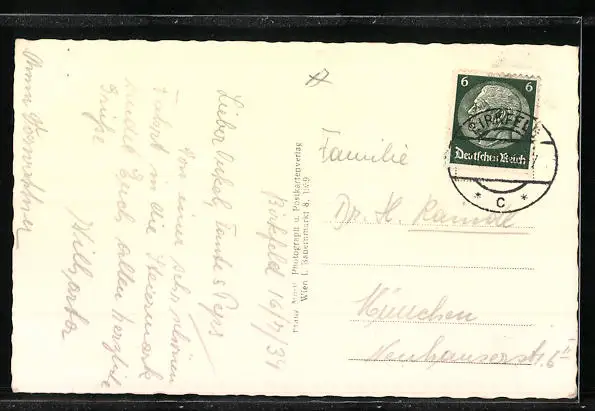 Birkfeld 16/7/39
Lieber Onkel, Tante & Peps
Von einer sehr schönen
Fahrt in die Steiermark
sendet Euch allen herzliche
Grüße
Anna
Photograph u. Postkartenverlag
Wien I. Bauernmarkt 8, 1369
6 6
Deutsches Reich
BIRKFELD
* C *
Familie
Dr. H.
München
Neuhauserstr. 6 II